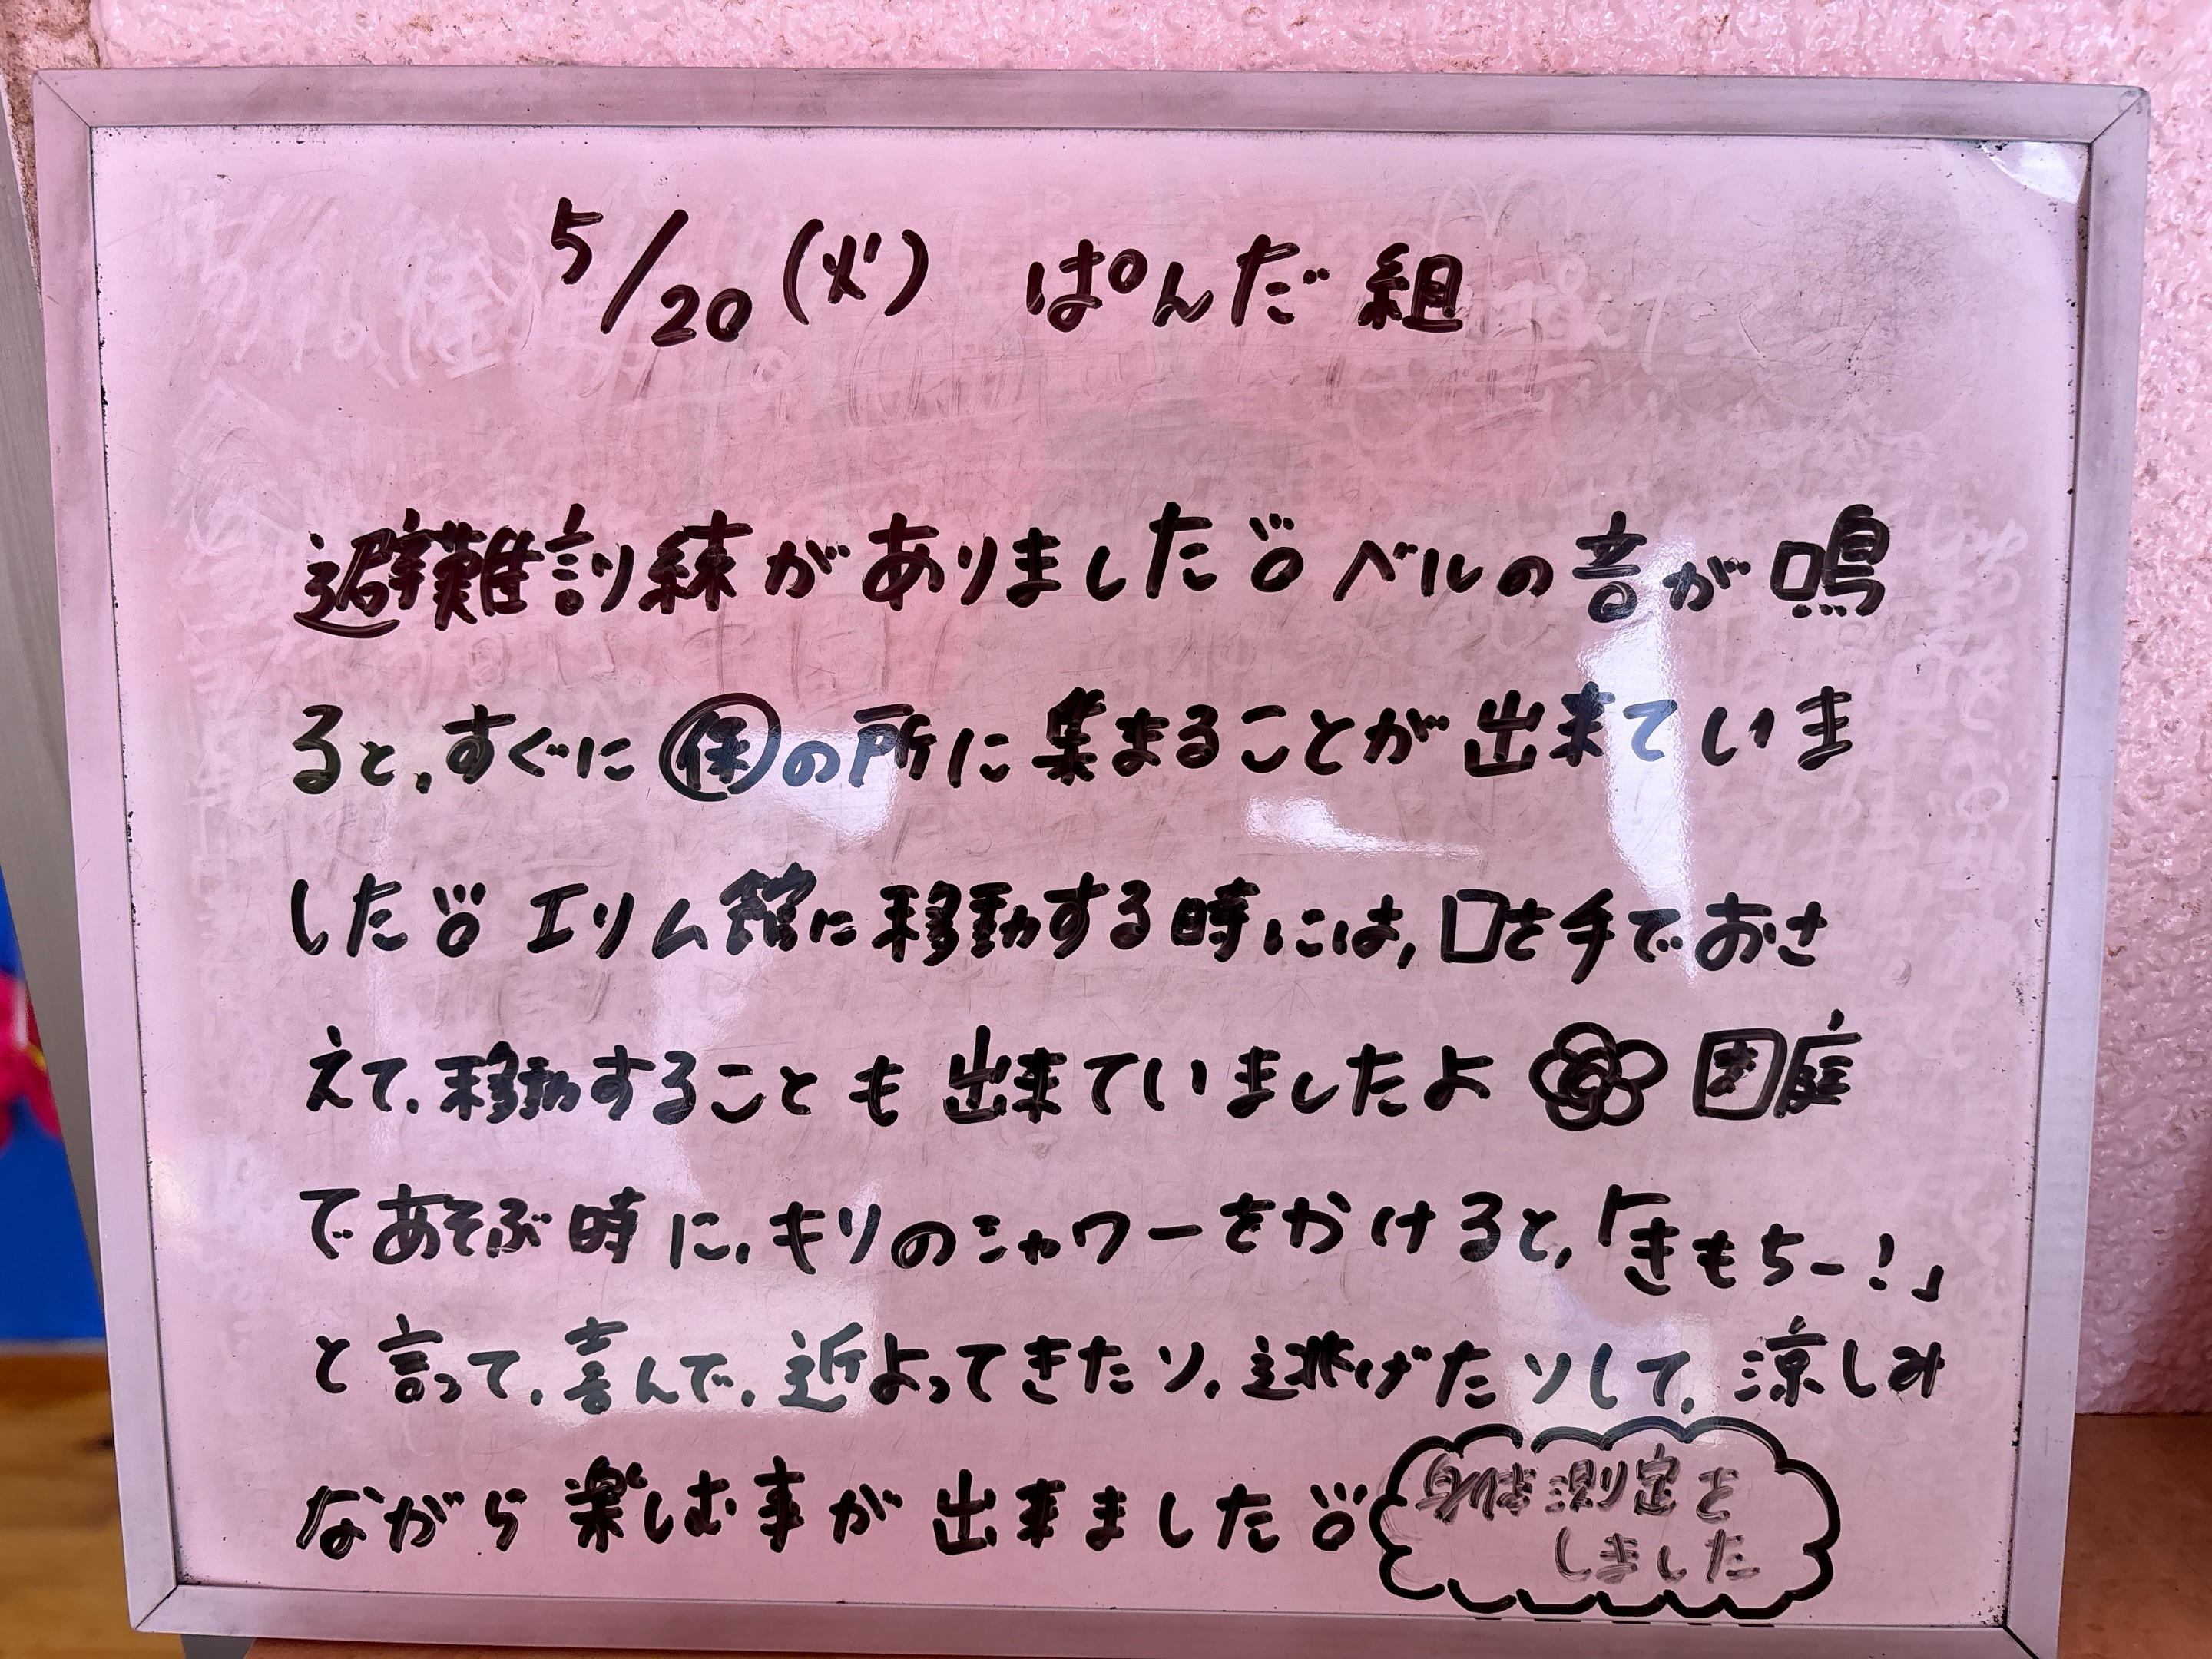 5/20(火) ぱんだ組
避難訓練がありました ベルの音が鳴
ると、すぐに㊝の所に集まることが出来ていま
した エリム館に移動する時には、口を手でおさ
えて、移動することも出来ていましたよ 園庭
であそぶ時に、キリのシャワーをかけると、「きもちー!」
と言って、喜んで、近よってきたり、逃げたりして、涼しみ
ながら楽しむ事が出来ました
身体測定を
しました